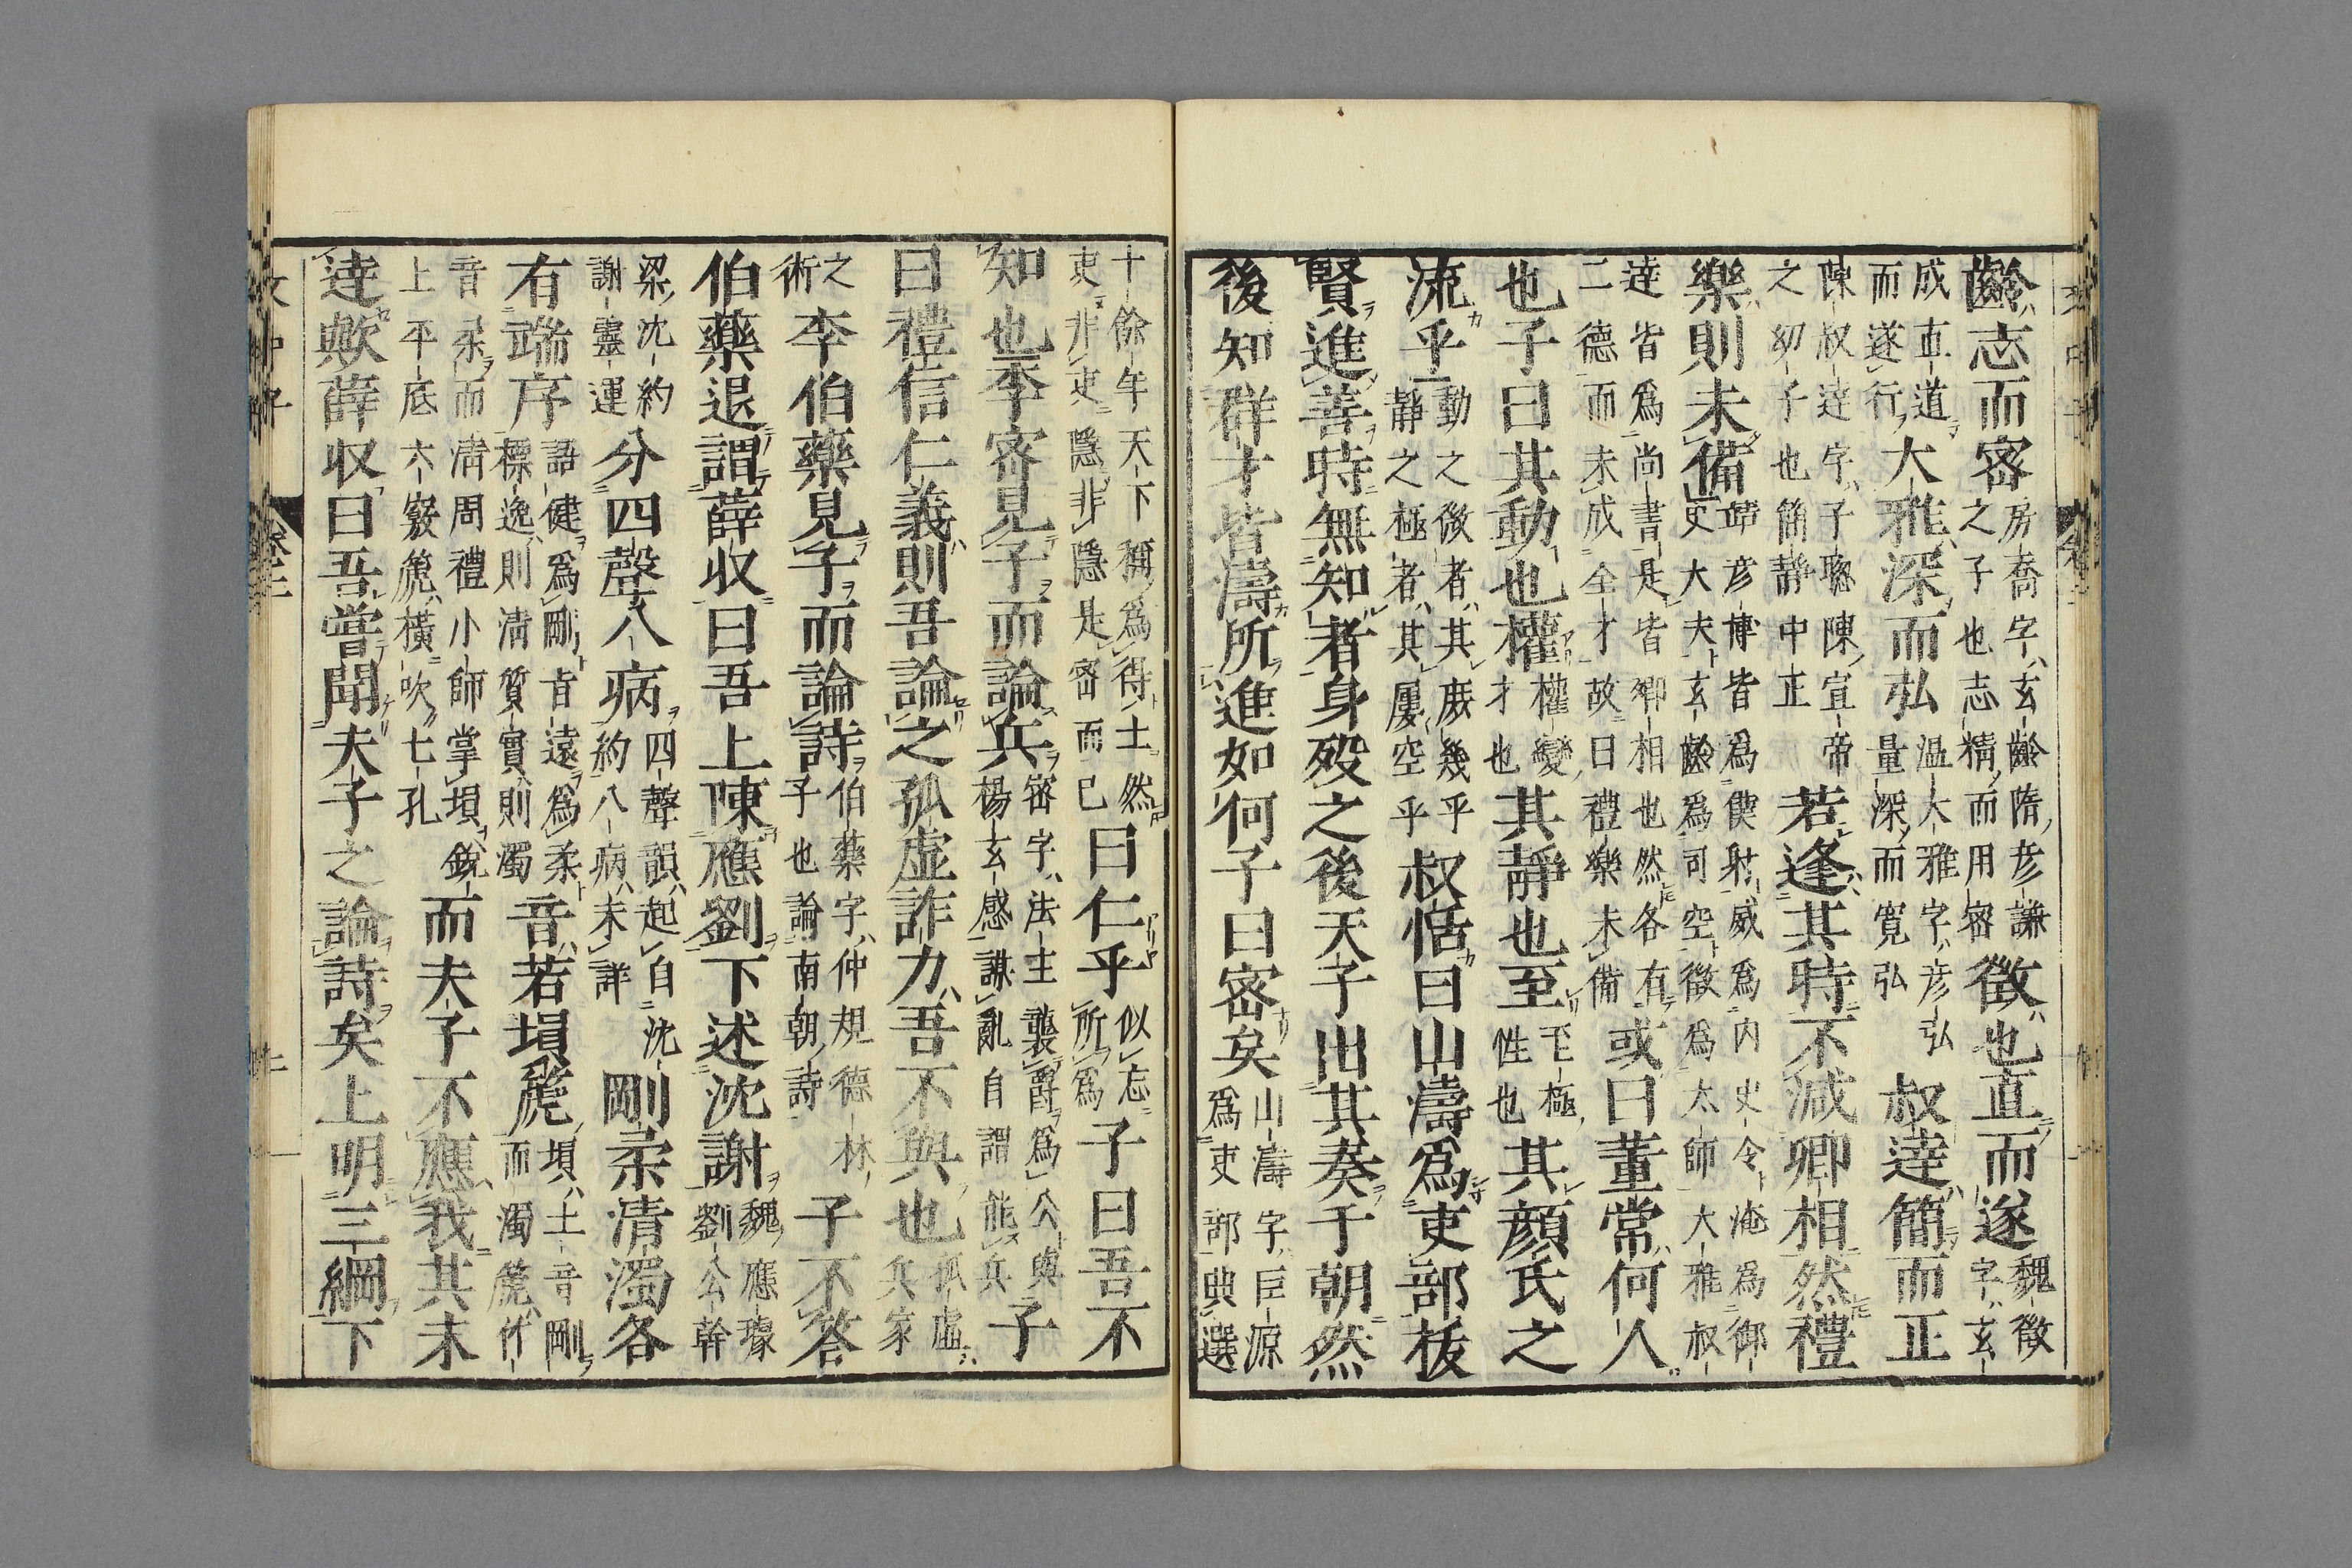 齡志而密房喬字玄齡隋彥謙之子也志精而用密徵也直而遂魏徵字玄
成直道而遂行大雅深而弘溫大雅字彥弘量深而寬弘叔達簡而正
陳叔達字子聰陳宣帝之幼子也簡靜中正若逢其時不減卿相然禮
樂則未備彥博皆爲僕射威爲內史令淹爲御史大夫玄齡爲司空徵爲太師大雅叔
達皆爲尚書是皆卿相也然各有二德而未成全才故曰禮樂未備或曰董常何人
也子曰其動也權權變才也其靜也至至極性也其顏氏之
流乎動之微者其庶幾乎靜之極者其屢空乎叔恬曰山濤爲吏部拔
賢進善時無知者身歿之後天子出其奏于朝然
後知群才皆濤所進如何子曰密矣山濤字巨源爲吏部典選
十餘年天下稱爲得士然吏非吏隱非隱是密而已曰仁乎似忘所爲子曰吾不
知也李密見子而論兵密字法主襲爵爲公與楊玄感謀亂自謂能兵子
曰禮信仁義則吾論之孤虛詐力吾不與也孤虛兵家
之術李伯藥見子而論詩伯藥字仲規德林子也論南朝詩子不答
伯藥退謂薛收曰吾上陳應劉下述沈謝魏應璩劉公幹
梁沈約謝靈運分四聲八病四聲韻起自沈約八病未詳剛柔清濁各
有端序語健爲剛旨遠爲柔標逸則清質實則濁音若塤篪塤土音剛而濁篪竹
音柔而清周禮小師掌塤銳上平底六竅篪橫吹七孔而夫子不應我其未
達歟薛收曰吾嘗聞夫子之論詩矣上明三綱下